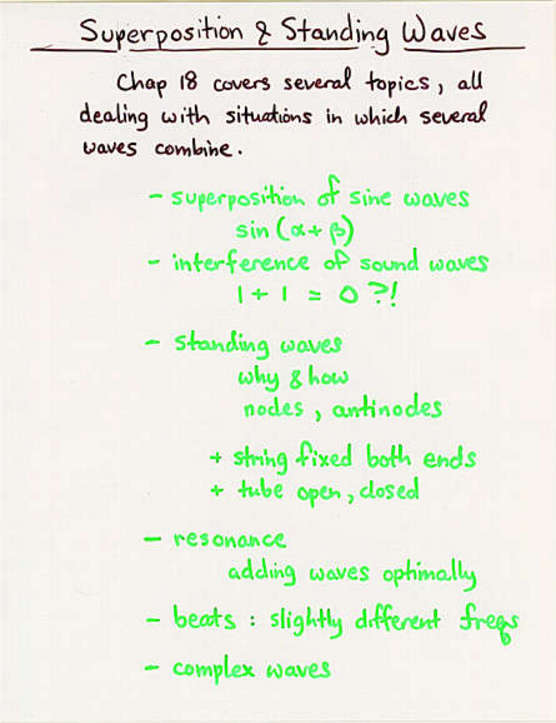 Superposition & Standing Waves
Chap 18 covers several topics, all
dealing with situations in which several
waves combine.
- superposition of sine waves
sin (α + β)
- interference of sound waves
1 + 1 = 0 ?!
- standing waves
why & how
nodes, antinodes
+ string fixed both ends
+ tube open, closed
- resonance
adding waves optimally
- beats : slightly different freqs
- complex waves